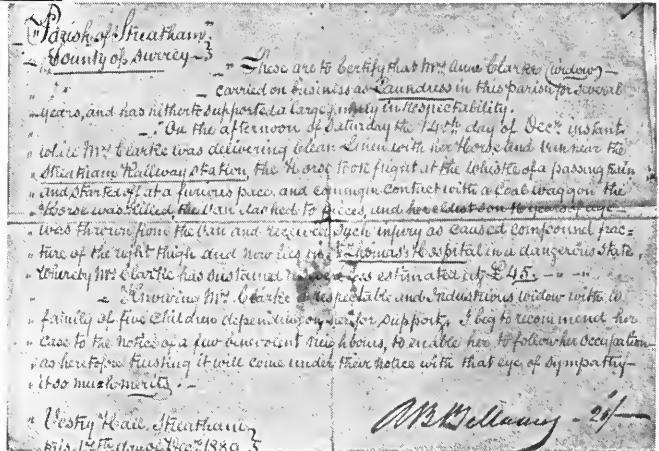 Parish of Streatham
County of Surrey
These are to Certify that Mrs Anne Clarke (widow)
carried on business as Laundress in this parish for several
years, and has hitherto supported a large family in respectability.
On the afternoon of Saturday the 14th day of Decr instant
while Mrs Clarke was delivering Clean Linen with her Horse and Van near the
Streatham Railway Station, the Horse took fright at the whistle of a passing train
and started off at a furious pace, and coming in contact with a Coal waggon the
Horse was killed, the Van dashed to pieces, and her eldest son 16 years of age
was thrown from the Van and received such injury as caused compound frac=
ture of the right thigh and now lies in St Thomas's Hospital in a dangerous state,
Whereby Mrs Clarke has sustained estimated at £45.
Knowing Mrs Clarke a respectable and Industrious widow with a
family of five Children depending on her for support, I beg to recommend her
case to the notice of a few benevolent neighbours, to enable her to follow her occupation
as heretofore trusting it will come under their notice with that eye of sympathy
it so much merits.
Vestry Hall, Streatham
this day of Decr 1889